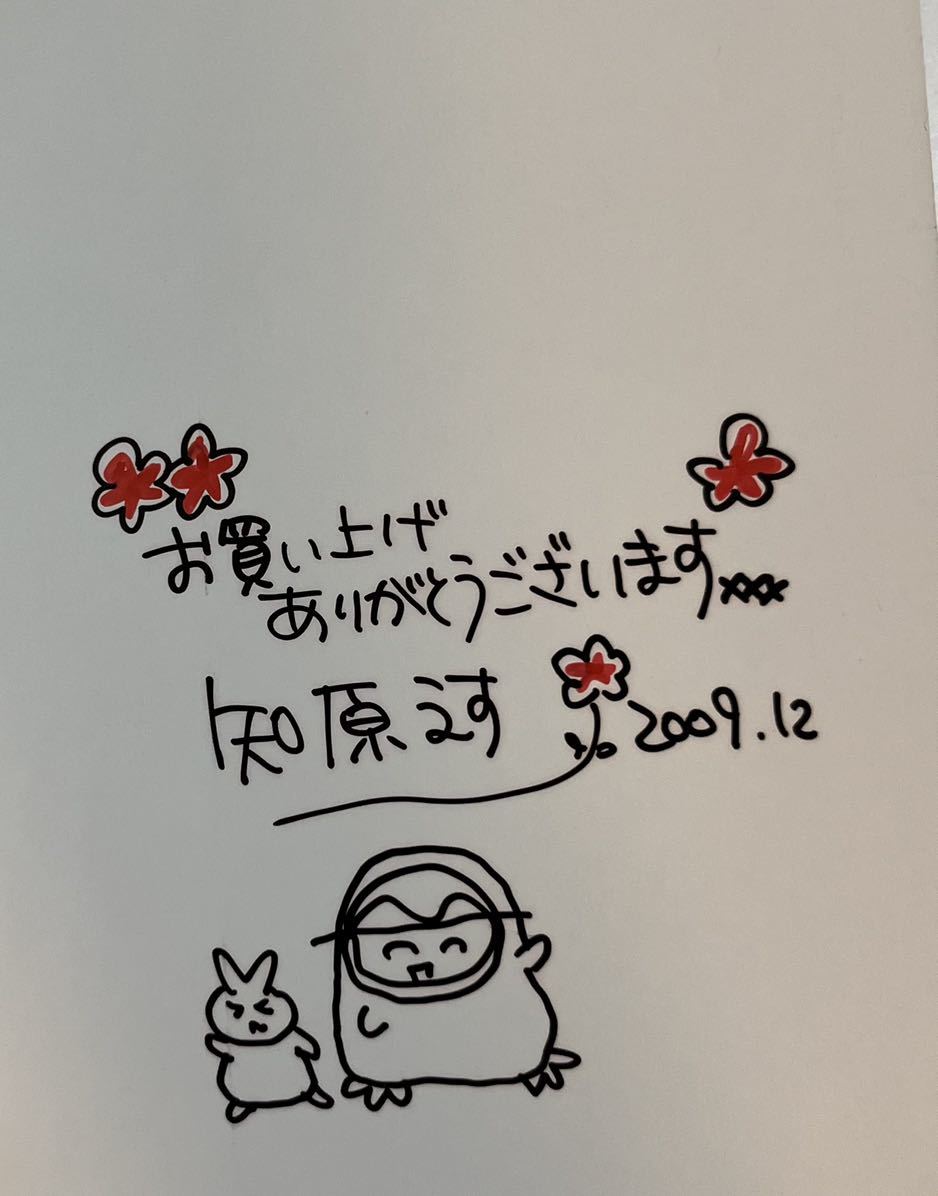 お買い上げ
ありがとうございます xxx
知原えす 2009.12